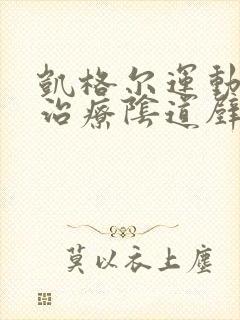 凱格尔運動
治療陰道壁
莫以衣上塵